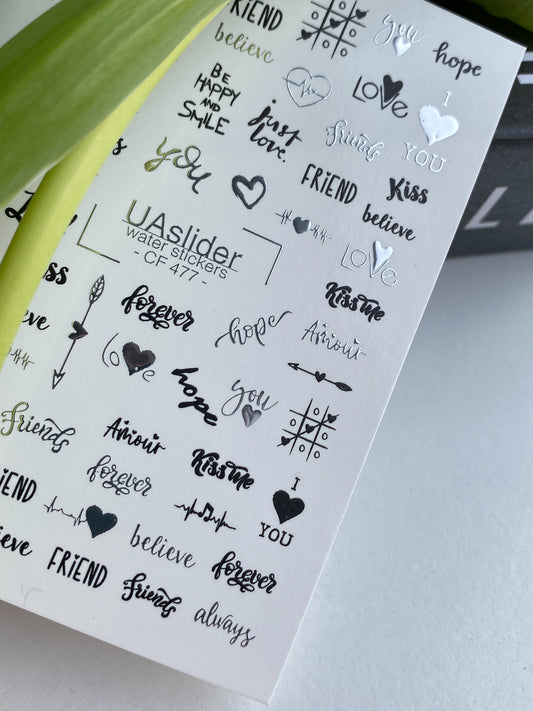 FRIEND
you
believe
hope
BE
HAPPY
AND
SMILE
LOVE
I
YOU
just
love.
friends
FRIEND
Kiss
you
believe
UAslider
water stickers
- CF 477 -
LOVE
Kiss me
forever
hope
Amour
love
hope
you
friends
Amour
Kiss me
I
YOU
forever
believe
forever
FRIEND
friends
always